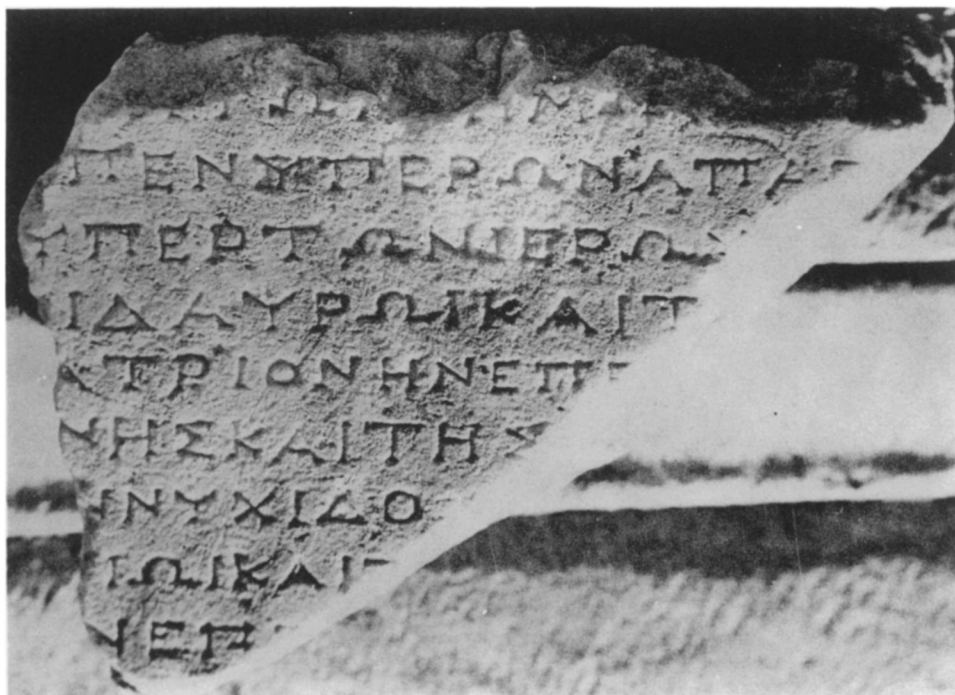 ΠΕΝΥΠΕΡΩΝΑΠΑ
ΥΠΕΡΤΩΝΙΕΡΩ
ΙΔΑΥΡΩΙΚΑΙΤ
ΑΤΡΙΟΝΗΝΕΠΕ
ΝΗΣΚΑΙΤΗΣ
ΝΝΥΧΙΔΟ
ΙΩΙΚΑΙ
ΝΕΠ